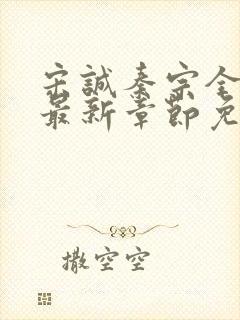 宋誠秦宗全
最新章節免
撒空空